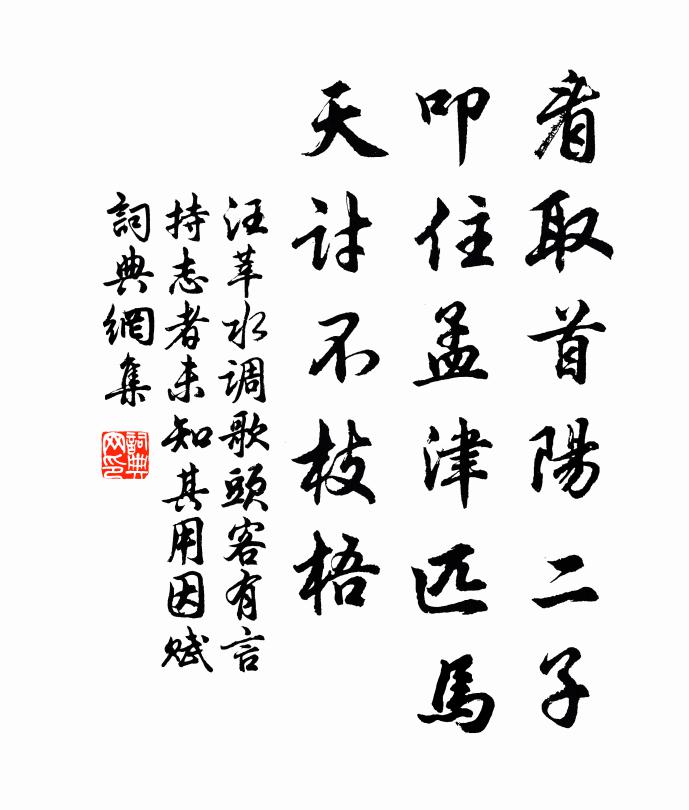 看取首陽二子
叩住孟津匹馬
天討不枝梧
汪莘水调歌頭客有言
持志者未知其用因赋
詞典網集
詞典
网印